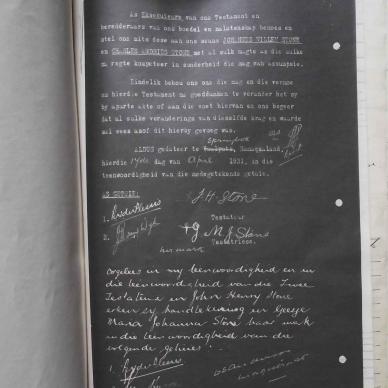 As Eksekuteurs van ons Testament en
beredderaars van ons boedel en nalatenskap benoem en
stel ons mits dese aan ons seuns JOHANNES WILLEM STONE
en CHARLES ANDRIES STONE met al sulk magte as die sulke
na regte kompeteer in sonderheid die mag van assumpsie.
Eindelik behou ons ons die mag en die vermoe
om hierdie Testament na goeddunken te verander het sy
by aparte akte of aan die voet hiervan en ons begeer
dat al sulke veranderings van dieselfde krag en waarde
sal wees asof dit hierby gevoeg was.
ALDUS gedateer te Springbok Namaqualand,
hierdie 14de dag van April 1931, in die
teenwoordigheid van die medegetekende getuie.
AS GETUIE:
J H Stone
1.
Testateur
2. J H van Wyk
G M J Stone
her mark
Testatrise.
Gegelees in my teenwoordigheid en in
die teenwoordigheid van die twee
Testateurs en John Henry Stone
erken sy handtekening en Geezie
Maria Johanna Stone haar merk
in die teenwoordigheid van die
volgende getuies:
1.